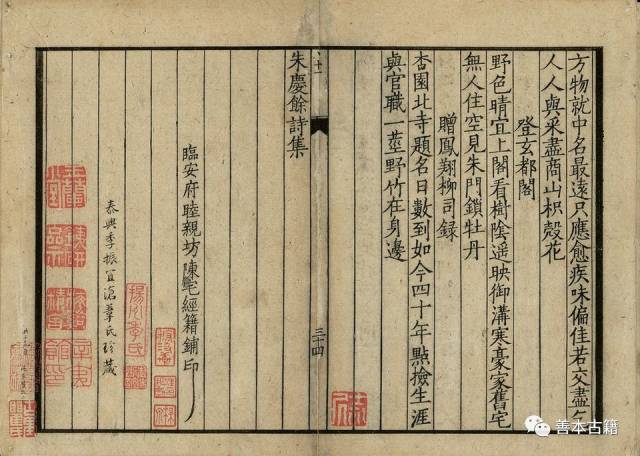 方物就中名最遠只應愈疾味偏佳若交盡乞
人人與采盡商山枳殼花
登玄都閣
野色晴宜上閣看樹陰遥映御溝寒豪家舊宅
無人住空見朱門鎖牡丹
贈鳳翔柳司録
杏園北寺題名日數到如今四十年點撿生涯
與官職一莖野竹在身邊
三十四
朱慶餘詩集
臨安府睦親坊陳宅經籍鋪印
泰興季振宜滄葦氏珍藏
善本古籍